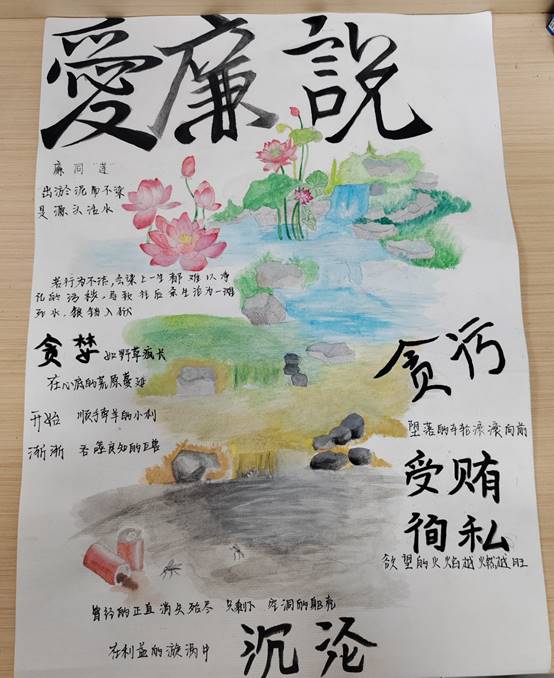 愛廉說
廉同"莲"
出淤泥而不染
是源头活水
若行为不洁,会染上一生都难以净
化的污秽,与软弱后余生沦为一滩
死水,锒铛入狱
贪婪 如野草疯长
在心底的荒原蔓延
开始 顺手牵羊的小利
渐渐 吞噬良知的巨兽
贪污
堕落的车轮滚滚向前
受贿
徇私
欲望的火焰越燃越旺
曾经的正直消失殆尽 只剩下 空洞的躯壳
在利益的漩涡中 沉沦